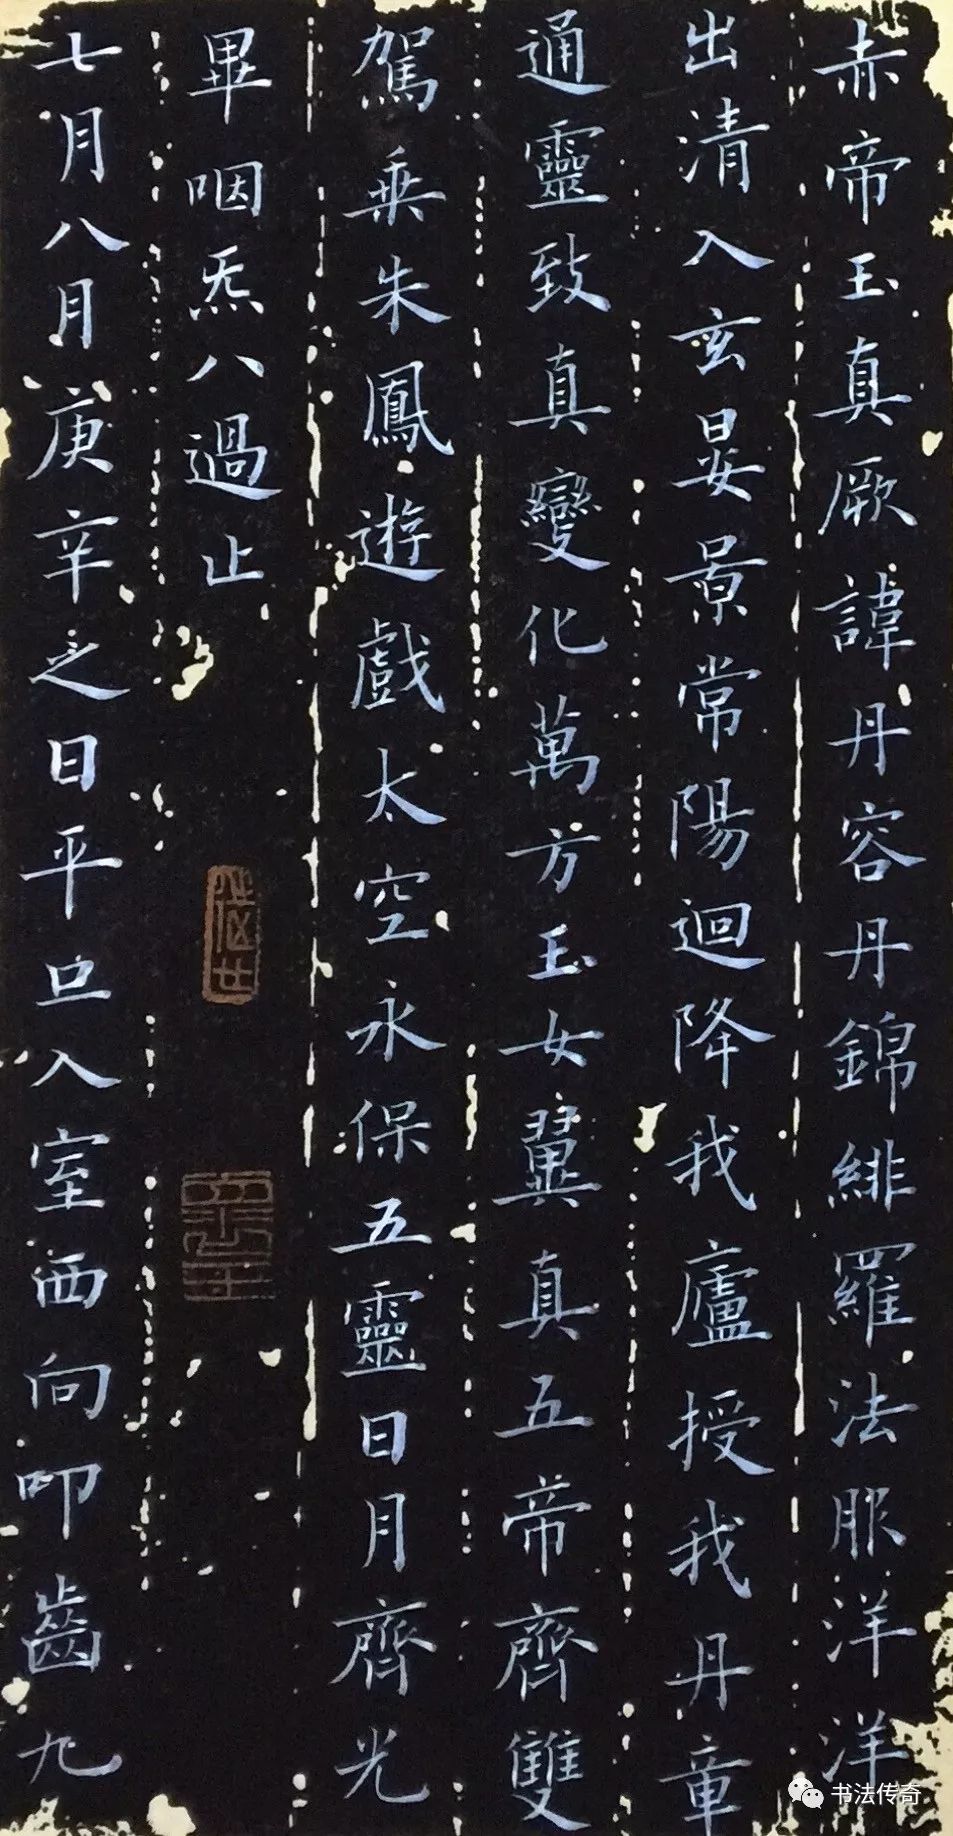 赤帝玉真厥諱丹容丹錦緋羅法服洋洋
出清入玄晏景常陽迴降我廬授我丹章
通靈致真變化萬方玉女翼真五帝齊雙
駕乗朱鳳遊戲太空永保五靈日月齊光
畢咽炁八過止
七月八月庚辛之日平旦入室西向叩齒九
书法传奇